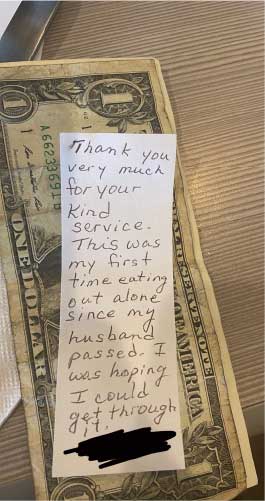 Thank you
very much
for your
kind
service.
This was
my first
time eating
out alone
since my
husband
passed. I
was hoping
I could
get through
it.
1
1
A66233691B
ONE DOLLAR
OF AMERICA
1